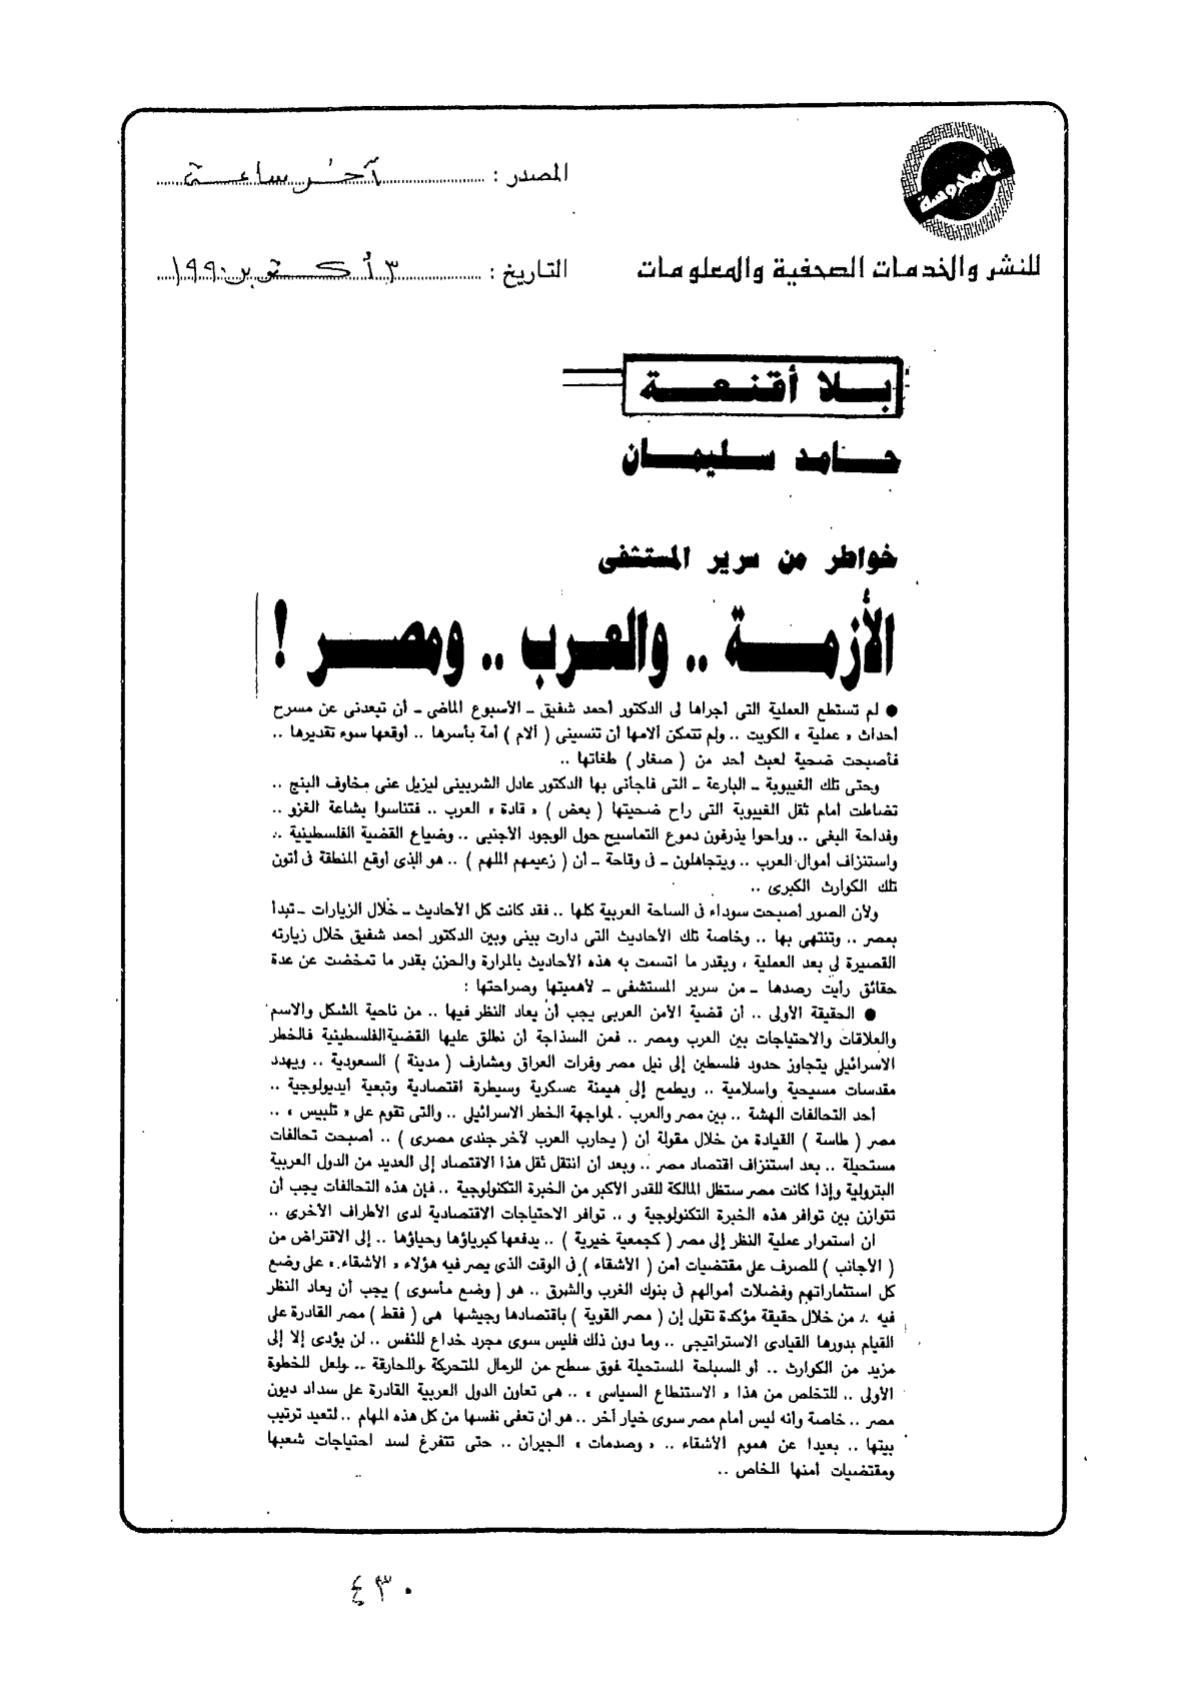 المحروسة
المصدر : آخر ساعة
للنشر والخدمات الصحفية والمعلومات
التاريخ : ٣ أكتوبر ١٩٩٠
بلا أقنعة
حامد سليمان
خواطر من سرير المستشفى
الأزمة .. والعرب .. ومصر !
● لم تستطع العملية التى أجراها لى الدكتور أحمد شفيق ــ الأسبوع الماضى ــ أن تبعدنى عن مسرح
أحداث « عملية » الكويت .. ولم تتمكن آلامها أن تنسينى ( آلام ) أمة بأسرها .. أوقعها سوء تقديرها ..
فأصبحت ضحية لعبث أحد من ( صغار ) طغاتها ..
وحتى تلك الغيبوبة ــ البارعة ــ التى فاجأنى بها الدكتور عادل الشربينى ليزيل عنى مخاوف البنج ..
تضاءلت أمام ثقل الغيبوبة التى راح ضحيتها ( بعض ) « قادة » العرب .. فتناسوا بشاعة الغزو ..
وفداحة البغى .. وراحوا يذرفون دموع التماسيح حول الوجود الأجنبى .. وضياع القضية الفلسطينية ..
واستنزاف أموال العرب .. ويتجاهلون ــ فى وقاحة ــ أن ( زعيمهم الملهم ) .. هو الذى أوقع المنطقة فى أتون
تلك الكوارث الكبرى ..
ولأن الصور أصبحت سوداء فى الساحة العربية كلها .. فقد كانت كل الأحاديث ــ خلال الزيارات ــ تبدأ
بمصر .. وتنتهى بها .. وخاصة تلك الأحاديث التى دارت بينى وبين الدكتور أحمد شفيق خلال زيارته
القصيرة لى بعد العملية ، وبقدر ما اتسمت به هذه الأحاديث بالمرارة والحزن بقدر ما تمخضت عن عدة
حقائق رأيت رصدها ــ من سرير المستشفى ــ لأهميتها وصراحتها :
● الحقيقة الأولى .. أن قضية الأمن العربى يجب أن يعاد النظر فيها .. من ناحية الشكل والاسم
والعلاقات والاحتياجات بين العرب ومصر .. فمن السذاجة أن نطلق عليها القضية الفلسطينية فالخطر
الاسرائيلى يتجاوز حدود فلسطين إلى نيل مصر وفرات العراق ومشارف ( مدينة ) السعودية .. ويهدد
مقدسات مسيحية واسلامية .. ويطمح إلى هيمنة عسكرية وسيطرة اقتصادية وتبعية أيديولوجية ..
أحد التحالفات الهشة .. بين مصر والعرب . لمواجهة الخطر الاسرائيلى .. والتى تقوم على « تلبيس » ..
مصر ( طاسة ) القيادة من خلال مقولة أن ( يحارب العرب لآخر جندى مصرى ) .. أصبحت تحالفات
مستحيلة .. بعد استنزاف اقتصاد مصر .. وبعد أن انتقل ثقل هذا الاقتصاد إلى العديد من الدول العربية
البترولية وإذا كانت مصر ستظل المالكة للقدر الأكبر من الخبرة التكنولوجية .. فإن هذه التحالفات يجب أن
تتوازن بين توافر هذه الخبرة التكنولوجية و .. توافر الاحتياجات الاقتصادية لدى الأطراف الأخرى ..
ان استمرار عملية النظر إلى مصر ( كجمعية خيرية ) .. يدفعها كبرياؤها وحياؤها .. إلى الاقتراض من
( الأجانب ) للصرف على مقتضيات أمن ( الأشقاء ) فى الوقت الذى يصر فيه هؤلاء « الأشقاء » على وضع
كل استثماراتهم وفضلات أموالهم فى بنوك الغرب والشرق .. هو ( وضع مأسوى ) يجب أن يعاد النظر
فيه .. من خلال حقيقة مؤكدة تقول إن ( مصر القوية ) باقتصادها وجيشها هى ( فقط ) مصر القادرة على
القيام بدورها القيادى الاستراتيجى .. وما دون ذلك فليس سوى مجرد خداع للنفس .. لن يؤدى إلا إلى
مزيد من الكوارث .. أو السباحة المستحيلة فوق سطح من الرمال المتحركة والحارقة .. ولعل الخطوة
الأولى .. للتخلص من هذا « الاستنطاع السياسى » .. هى تعاون الدول العربية القادرة على سداد ديون
مصر .. خاصة وانه ليس أمام مصر سوى خيار آخر .. هو أن تعفى نفسها من كل هذه المهام .. لتعيد ترتيب
بيتها .. بعيدا عن هموم الأشقاء .. « وصدمات » الجيران .. حتى تتفرغ لسد احتياجات شعبها
ومقتضيات أمنها الخاص ..
٤٣٠